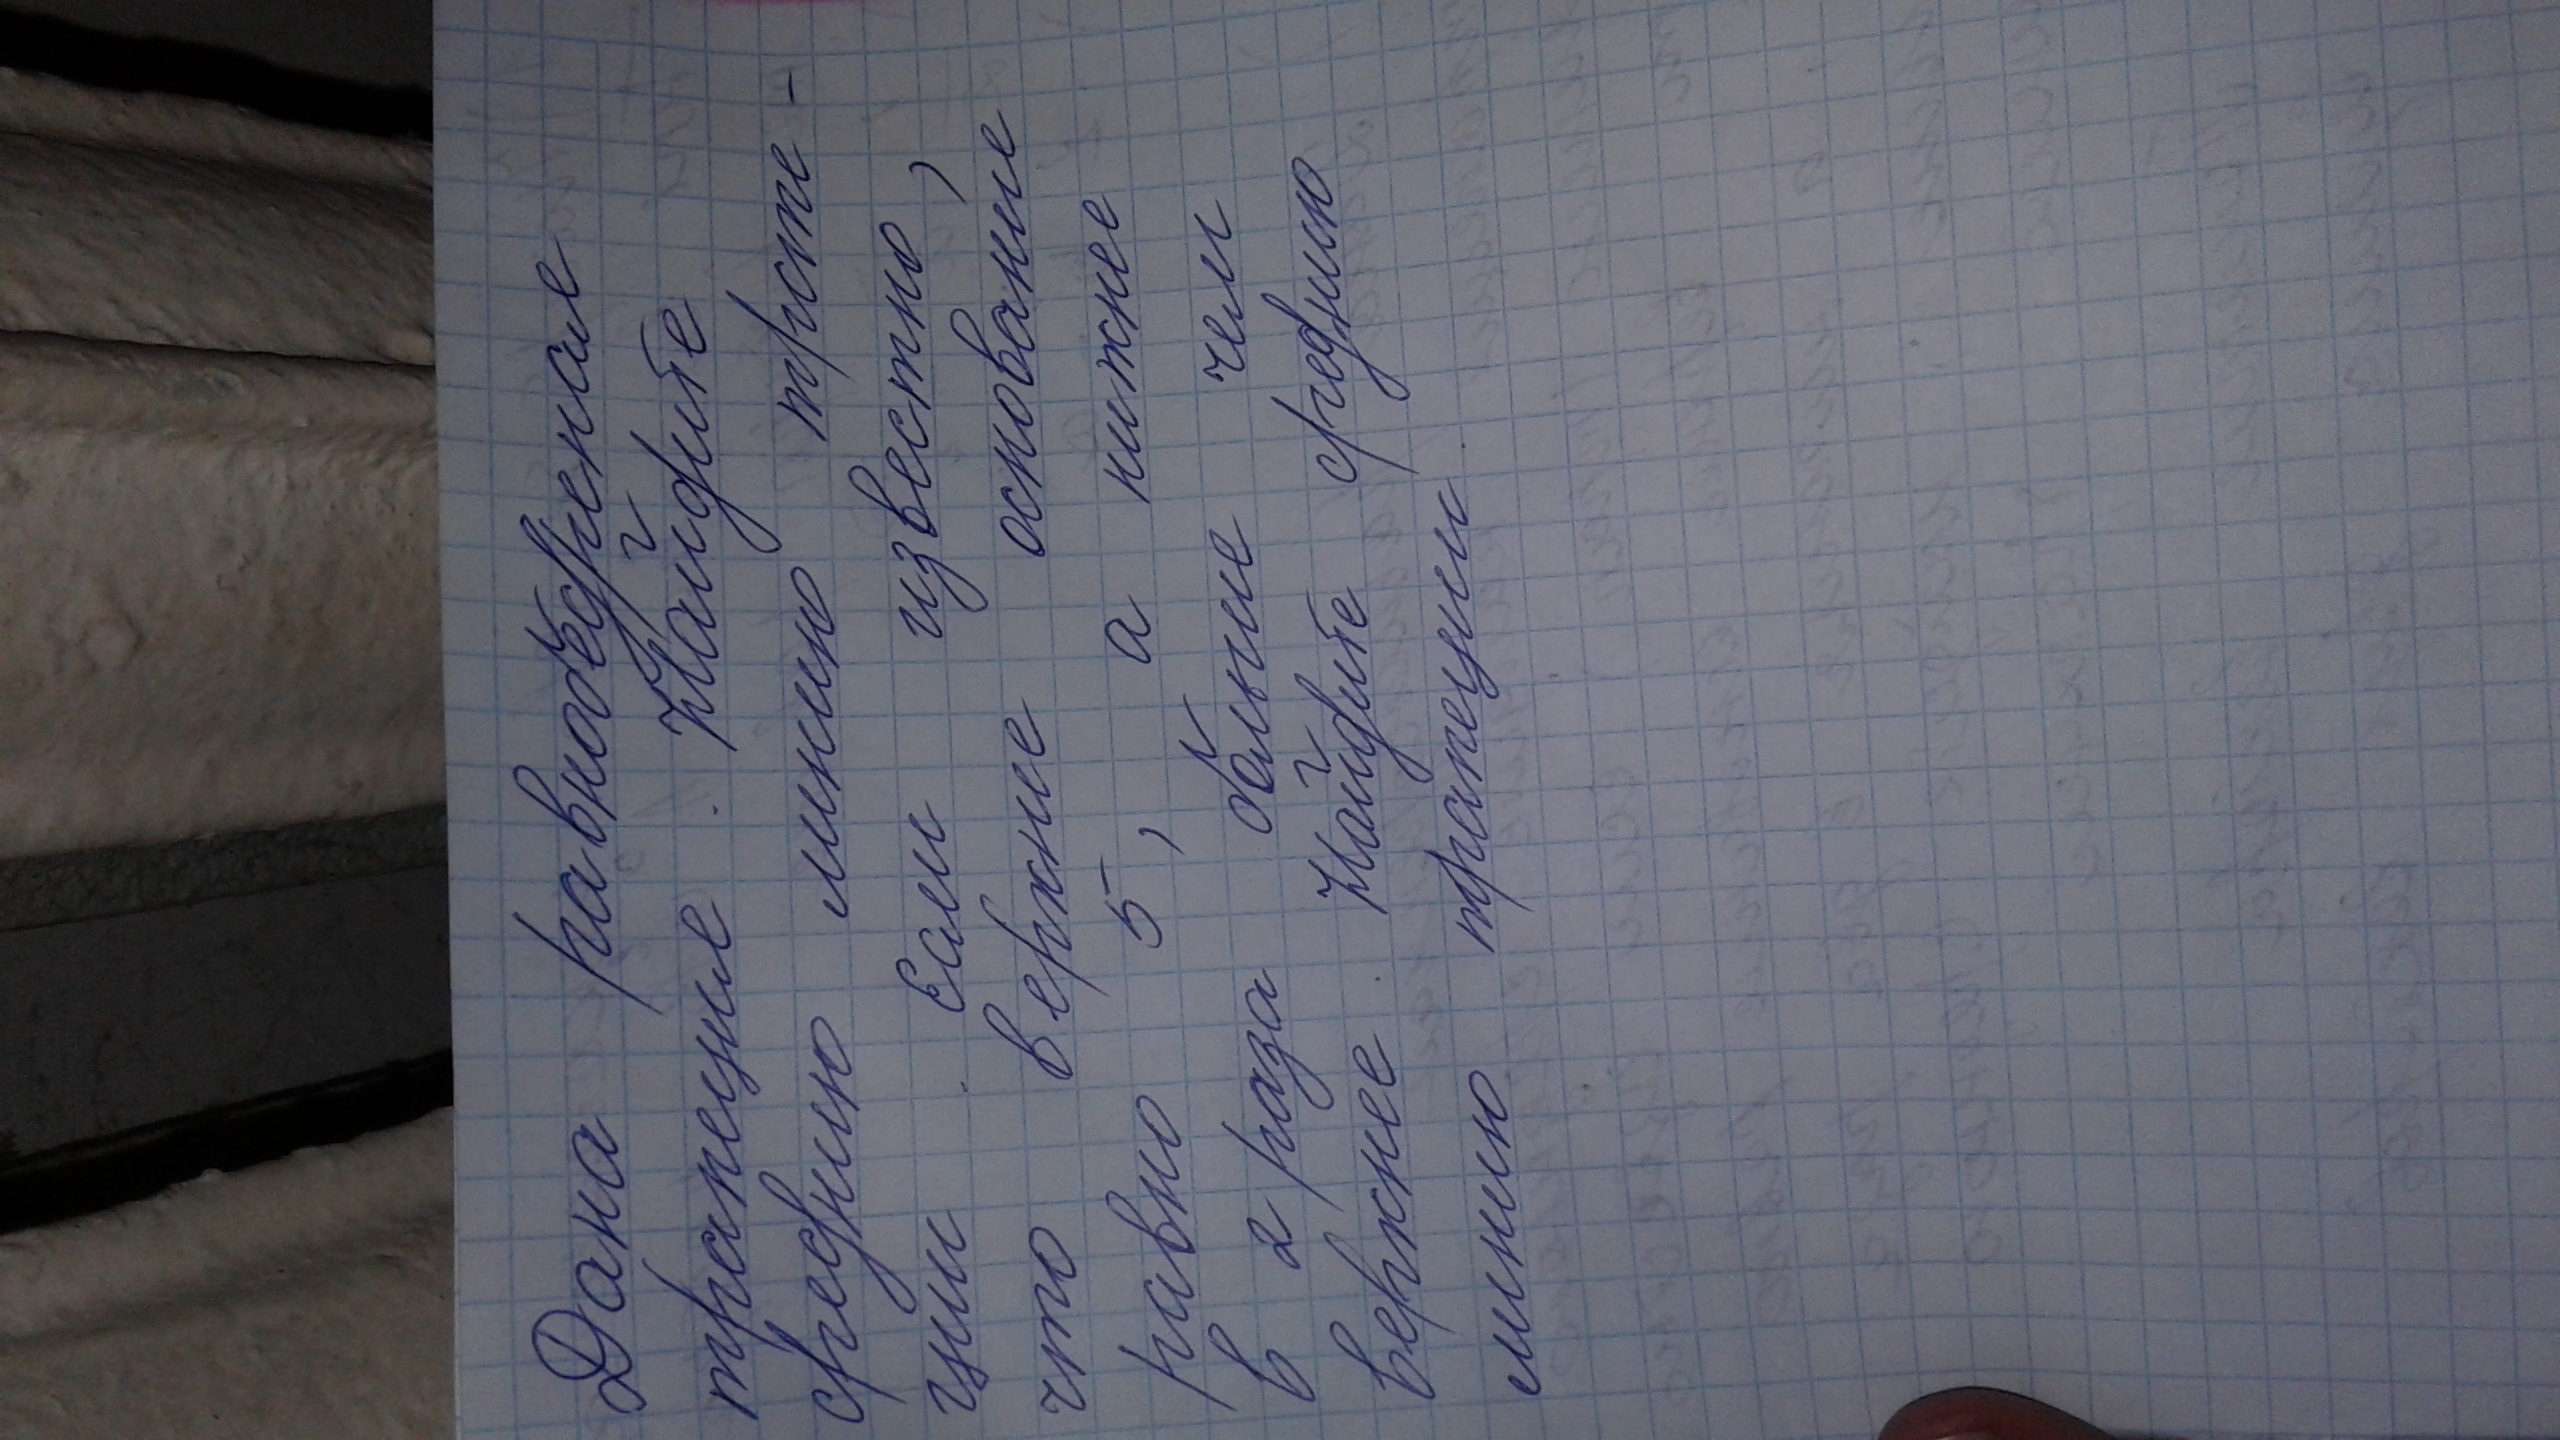 Дана равнобедренная
трапеция. Найдите
среднию линию трапе-
ции. Если известно,
что верхнее основание
равно 5, а нижнее
в 2 раза больше чем
верхнее. Найдите среднию
линию трапеции.